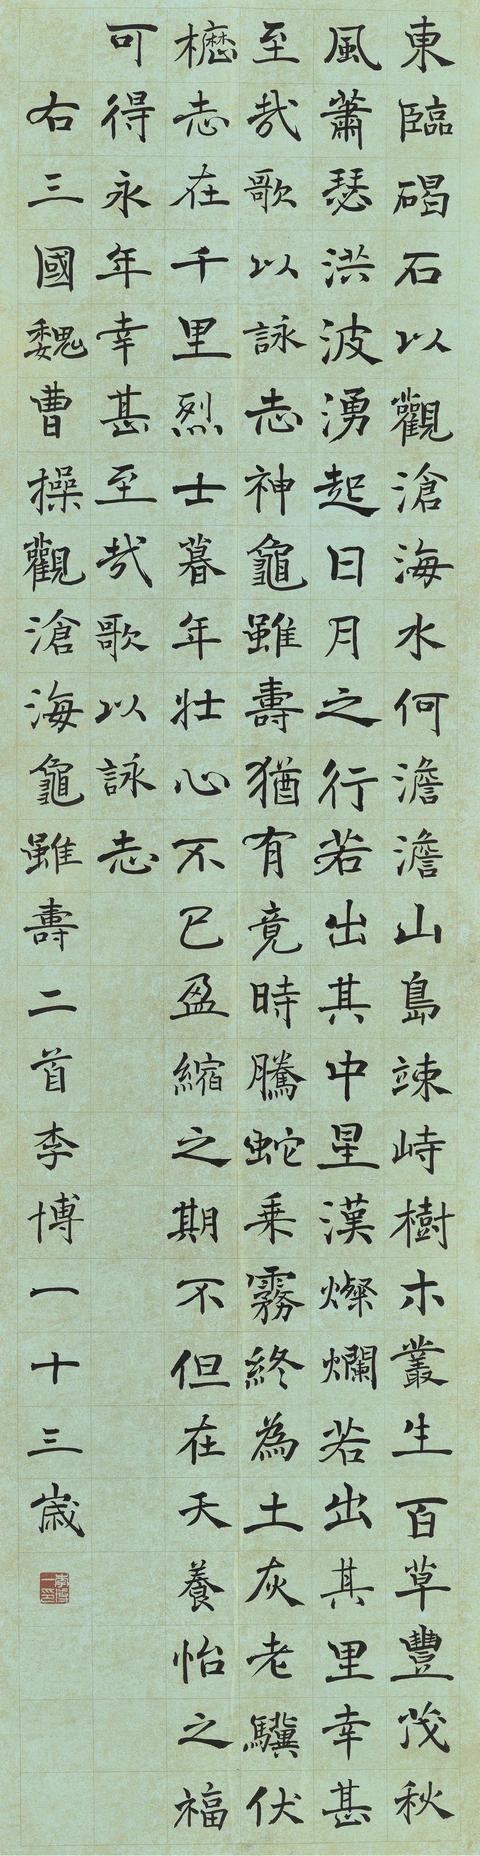 東臨碣石以觀滄海水何澹澹山島竦峙樹木叢生百草豐茂秋
風蕭瑟洪波湧起日月之行若出其中星漢燦爛若出其里幸甚
至哉歌以詠志神龜雖壽猶有竟時騰蛇乗霧終為土灰老驥伏
櫪志在千里烈士暮年壯心不已盈縮之期不但在天養怡之福
可得永年幸甚至哉歌以詠志
右三國魏曹操觀滄海龜雖壽二首李博一十三歲
李博一印